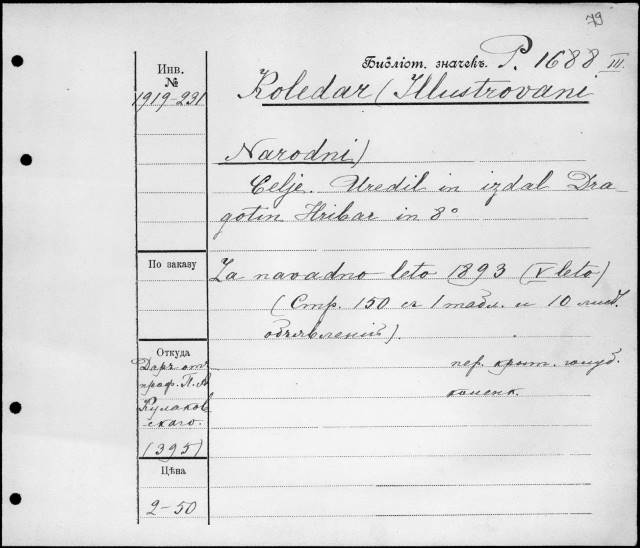 79
Библіот. значекъ. P. 1688 III.
Инв.
№
1919-231
Koledar (Illustrovani
Narodni)
Celje. Uredil in izdal Dra-
gotin Hribar in 8°
По заказу
Za navadno leto 1893 (V leto)
(Стр. 150 съ 1 табл. и 10 лист.
объявленій).
Откуда
Даръ отъ
проф. П. А.
Кулаков
скаго.
(395)
пер. крыт. голуб.
коленк.
Цѣна
2-50